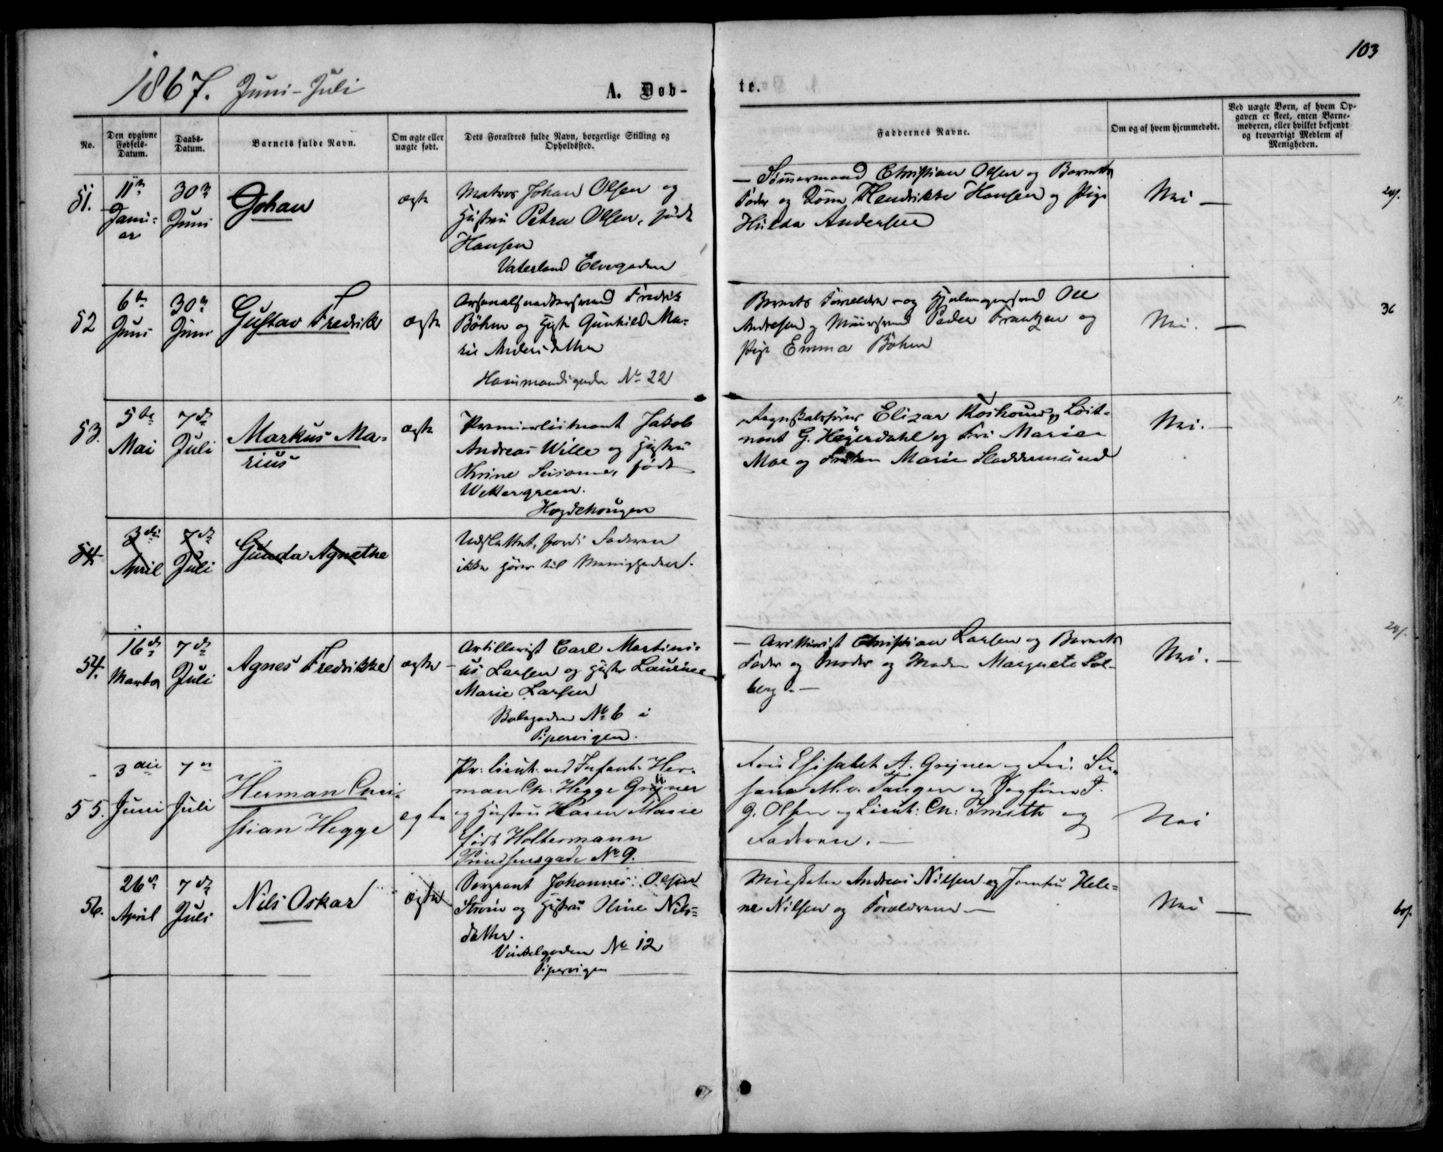 103
1867. Juni-Juli
A. Døb-
te.
No.
Den opgivne Fødsels-Datum.
Daabs-Datum.
Barnets fulde Navn.
Om ægte eller uægte født.
Dets Forældres fulde Navn, borgerlige Stilling og Opholdssted.
Faddernes Navne.
Om og af hvem hjemmedøbt.
Ved uægte Børn, af hvem Opgaven er skeet, enten Barnemoderen, eller hvilket bekjendt og troværdigt Medlem af Menigheden.
51.
11te Januar
30te Juni
Johan
ægte
Matros Johan Olsen og
Hustru Petra Olsen, født
Hansen
Vaterland Elvegaden
Christian Olsen og Barnets
Fader og Hendrikke Hansen og Pige
Hilda Andersen
Nei
52
6te Juni
30te Juni
Gustav Fredrik
ægte
Fredrik
Böhm og Gunhild Ma-
rie Andersdatter
Hammersborggaden No 22
Barnets Forældre og Ole
Andersen og Peder Frantzen og
Pige Emma Böhm
Nei.
36
53.
5te Mai
7de Juli
Markus Ma-
rius
ægte
Premierlieutnant Jakob
Andreas Wille og Hustru
Susanne, født
Wettergreen.
Elizar og Lieut-
nant G. Heyerdahl og Marie
Moe og Frøken Marie
Nei.
54.
3die April
7de Juli
Gunda Agnethe
Udslettet, fordi Faderen
ikke hører til Menigheden.
54.
16de Marts
7de Juli
Agnes Fredrikke
ægte
Artillerist Carl Martini-
us Larsen og Hustru Laurine
Marie Larsen
No 6 i
Pipervigen.
Christian Larsen og Barnets
Fader og Moder og Madam Margrete Sol-
berg.
Nei.
55.
3die Juni
7de Juli
Herman Chri-
stian Hegge
ægte
Pr: Lieut: ved Infant: Her-
man Ch: Hegge
og Hustru Karen Marie
født Holtermann
Prindsensgade No 9.
Elisabet A. og
og J.
G. Olsen og Lieut: Ch: Smith og
Faderen.
Nei
56.
26de April
7de Juli
Nils Oskar
ægte
Sergeant Johannes Olsen
og Hustru Oline Nils-
datter.
Vinkelgaden No 12
Pipervigen
Andreas Nilsen og Jomfru Hele-
ne Nilsen og Forældrene
Nei